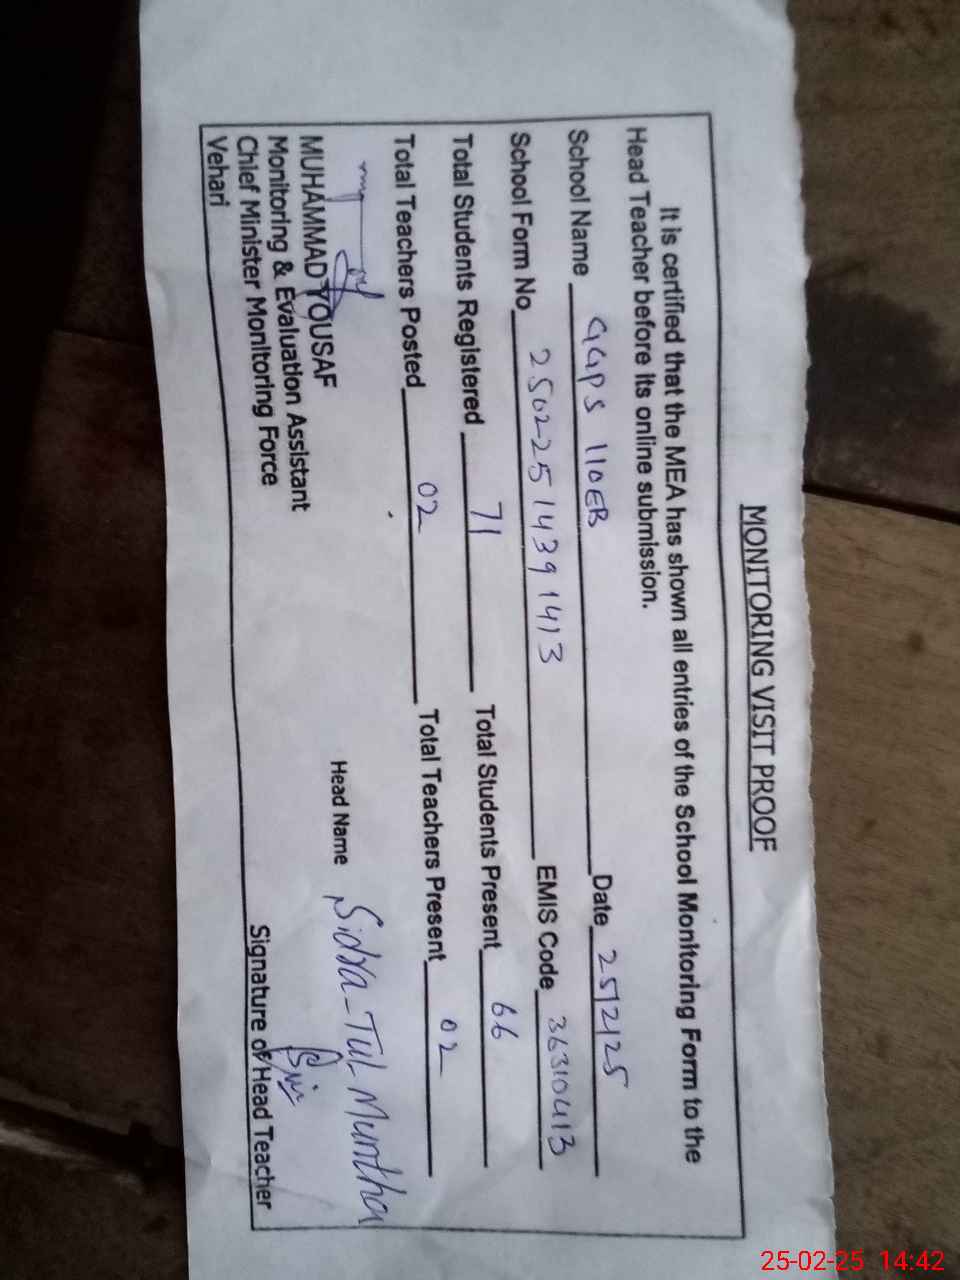 MONITORING VISIT PROOF
It is certified that the MEA has shown all entries of the School Monitoring Form to the
Head Teacher before its online submission.
School Name GGPS 110EB Date 25/2/25
School Form No 2502251439 1413 EMIS Code 36310413
Total Students Registered 71 Total Students Present 66
Total Teachers Posted 02 Total Teachers Present 02
Head Name Sidra-Tul Muntha
MUHAMMAD YOUSAF
Monitoring & Evaluation Assistant
Chief Minister Monitoring Force
Vehari
Signature of Head Teacher
25-02-25 14:42